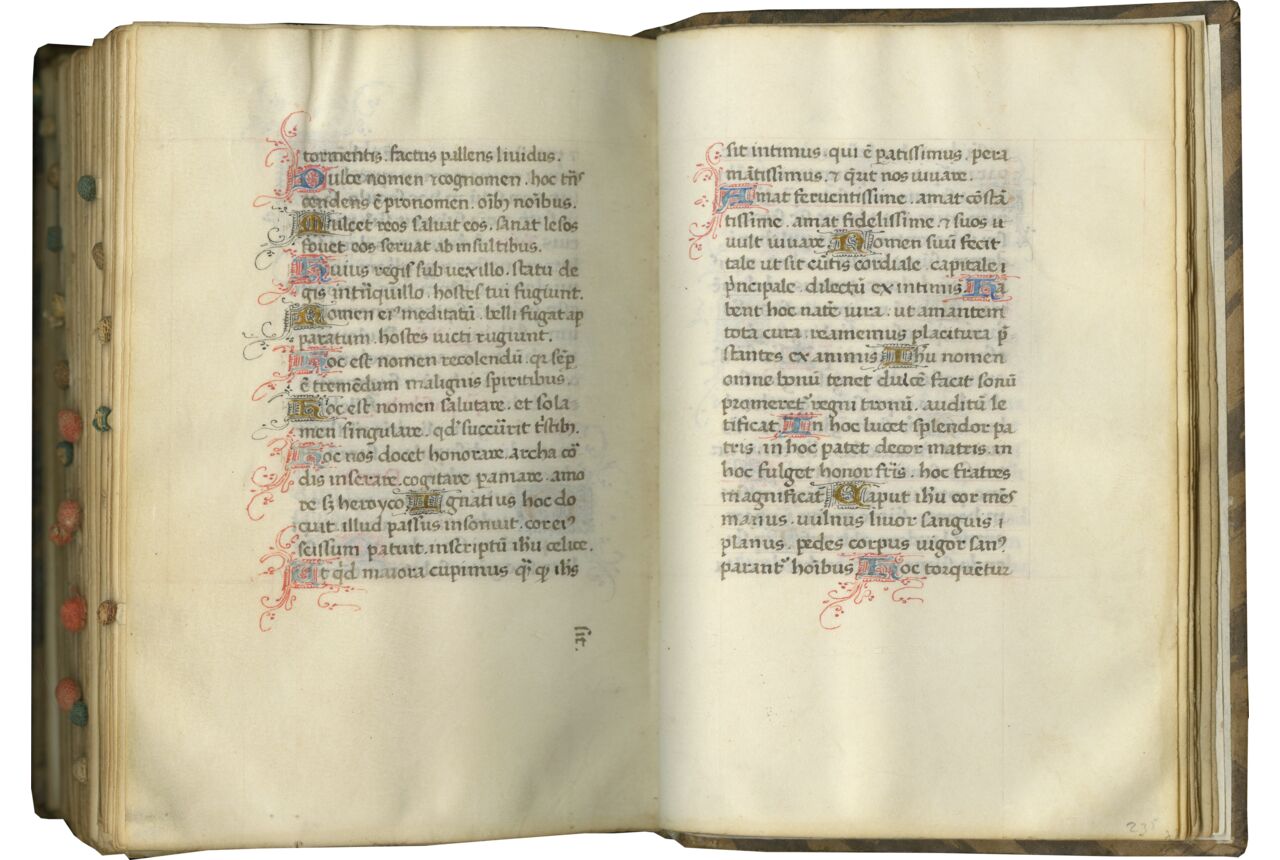 tormentis. factus pallens liuidus.
Dulce nomen ⁊ cognomen. hoc tñs
cendens ē pronomen. oīb noībus.
Mulcet reos saluat eos. sanat lesos
fouet eos seruat ab insultibus.
Huius regis sub uexillo. statu de
gis in tñquillo. hostes tui fugiunt.
Nomen eiꝰ meditatū. belli fugat ap
paratum. hostes uicti rugiunt.
Hoc est nomen recolendū. qꝫ semꝑ
ē tremēdum malignis spiritibus.
Hoc est nomen salutare. et sola
men singulare. qd succūrit tīstibꝫ.
Hoc nos docet honorare. archa cor
dis inserare. cogitare pamare. amo
re sꝫ heroyco. Ignatius hoc do
cuit. illud passus insonuit. cor eiꝰ
scissum patuit. inscriptū ihu celice.
At qd maiora cupimus qꝫ ihs
sit.
sit intimus. qui ē patissimus. pera
mātissimus. ⁊ qrit nos iuuare.
Amat feruentissime. amat cōstā
tissime. amat fidelissime. ⁊ suos u
uult iuuare. Nomen suū fecit
tale ut sit cūtis cordiale. capitale ⁊
pncipale. dilectū ex intimis. Ha
bent hoc nate iura. ut amantem
tota cura. reamemus placitura p̄
stantes ex animis. Ihu nomen
omne bonū tenet dulcē facit sonū
promeret regni tronū. auditū le
tificat. In hoc lucet splendor pa
tris. in hoc patet decor matris. in
hoc fulget honor fris. hoc fratres
magnificat. Caput ihu cor mēs
manus. uulnus liuor sanguis ⁊
planus. pedes corpus uigor sanꝰ
parant hoībus. Hoc torquētur
235